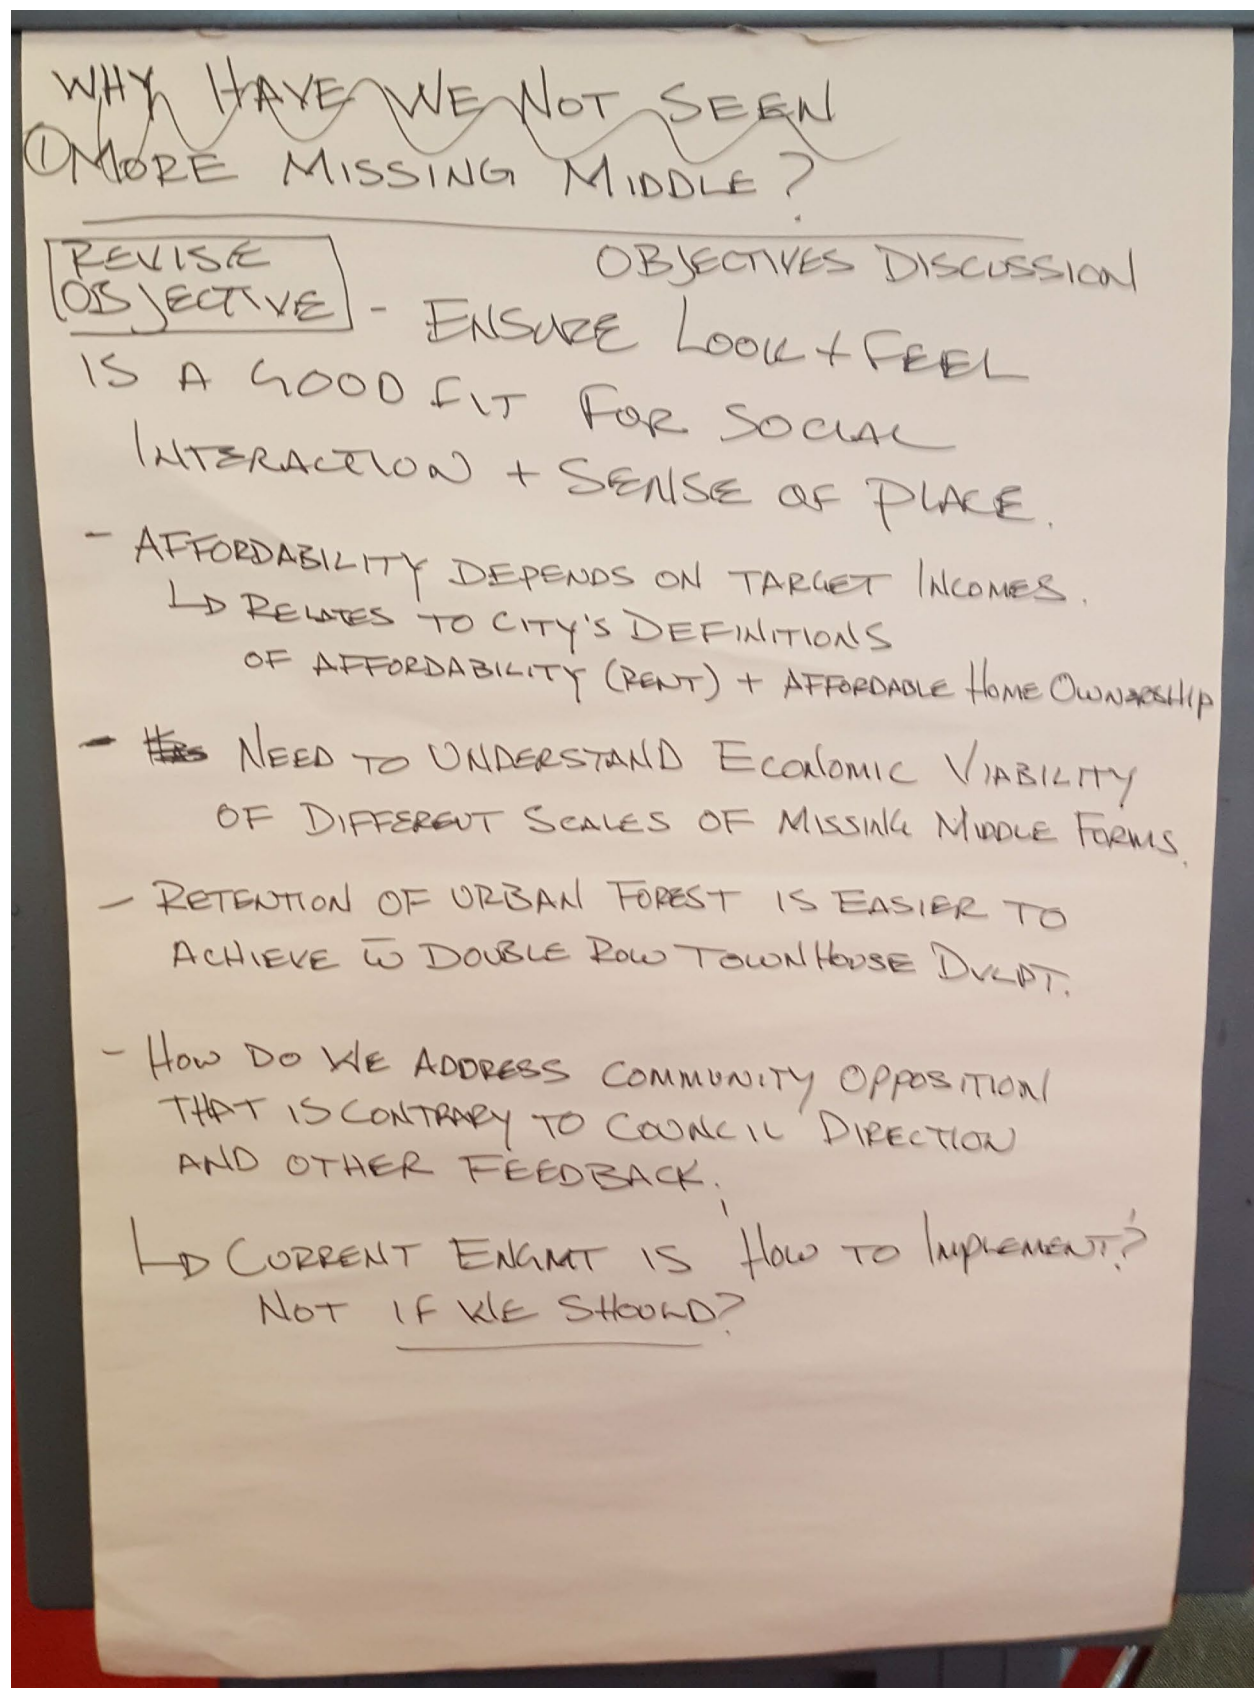 WHY HAVE WE NOT SEEN
① MORE MISSING MIDDLE?
OBJECTIVES DISCUSSION
REVISE
OBJECTIVE - ENSURE LOOK + FEEL
IS A GOOD FIT FOR SOCIAL
INTERACTION + SENSE OF PLACE.
- AFFORDABILITY DEPENDS ON TARGET INCOMES.
↳ RELATES TO CITY'S DEFINITIONS
OF AFFORDABILITY (RENT) + AFFORDABLE HOME OWNERSHIP
- NEED TO UNDERSTAND ECONOMIC VIABILITY
OF DIFFERENT SCALES OF MISSING MIDDLE FORMS.
- RETENTION OF URBAN FOREST IS EASIER TO
ACHIEVE w̄ DOUBLE ROW TOWNHOUSE DVLPT.
- HOW DO WE ADDRESS COMMUNITY OPPOSITION
THAT IS CONTRARY TO COUNCIL DIRECTION
AND OTHER FEEDBACK.
↳ CURRENT ENGMT IS 'HOW TO IMPLEMENT'?
NOT IF WE SHOULD?